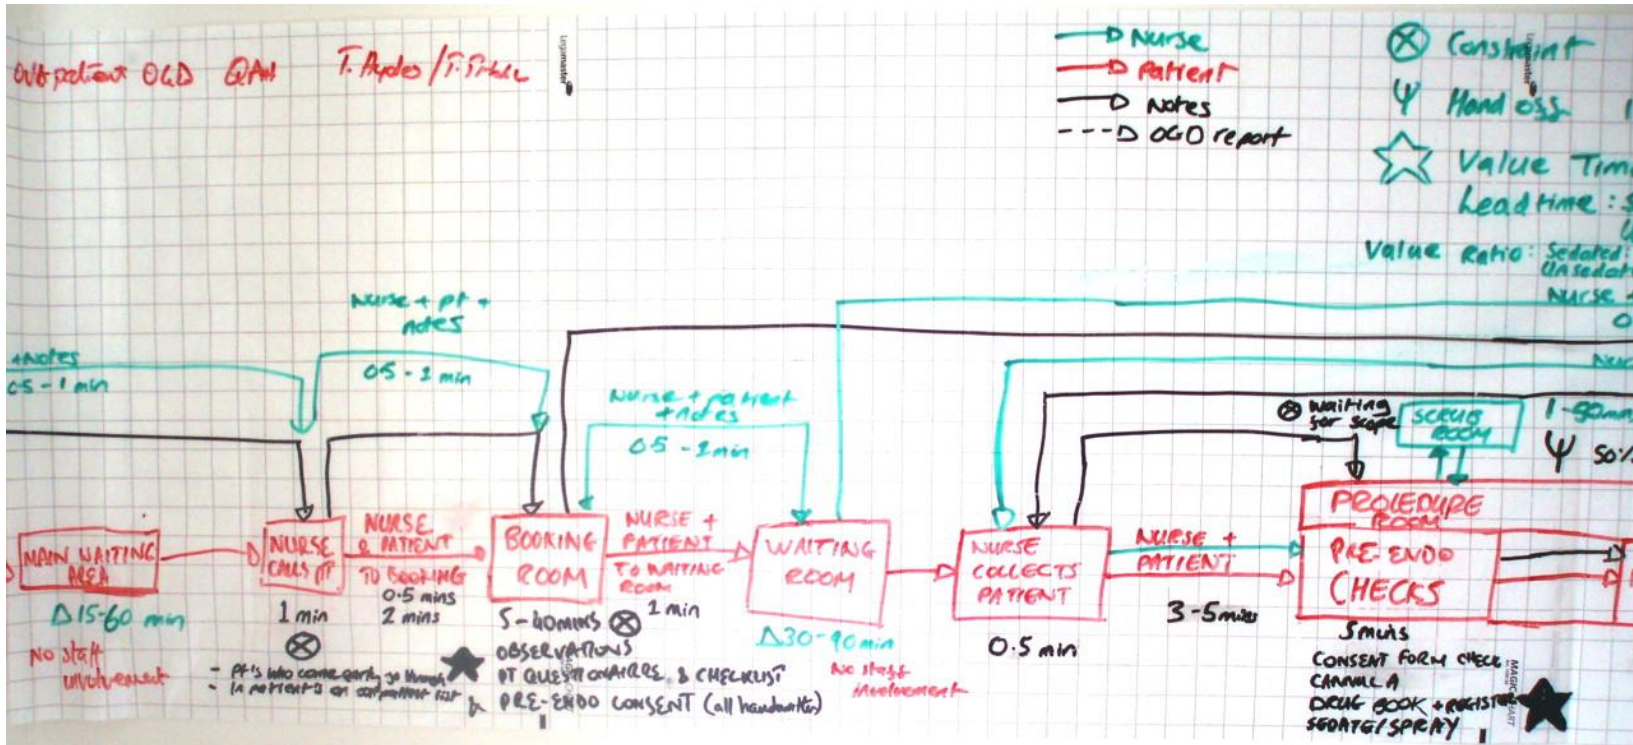 Outpatient OGD QAH
Logamaster
Nurse
Patient
Notes
OGD report
Constraint
Hand off
Value Tim
Lead time : S
Value Ratio : Sedated :
Unsedat
Logamaster
Nurse +
0
Nurse + pt +
notes
0.5 - 1 min
+ Notes
0.5 - 1 min
Nurse + patient
+ notes
0.5 - 1 min
waiting
for scope
SCRUB
ROOM
1 - 90 min
50%
PROCEDURE
ROOM
MAIN WAITING
AREA
Δ 15-60 min
No staff
involvement
NURSE
CALLS PT
1 min
- Pt's who come early go through
- In patient's on outpatient list
NURSE
& PATIENT
TO BOOKING
0.5 mins
2 mins
BOOKING
ROOM
5-40mins
OBSERVATIONS
PT QUESTIONAIRRE & CHECKLIST
& PRE-ENDO CONSENT (all handwritten)
NURSE +
PATIENT
TO WAITING
ROOM
1 min
WAITING
ROOM
Δ30-90min
No staff
involvement
NURSE
COLLECTS
PATIENT
0.5 min
NURSE +
PATIENT
3-5 mins
PRE-ENDO
CHECKS
5 mins
CONSENT FORM CHECK
CANNULA
DRUG BOOK + REGISTER
SEDATE/SPRAY
MAGIC CHART